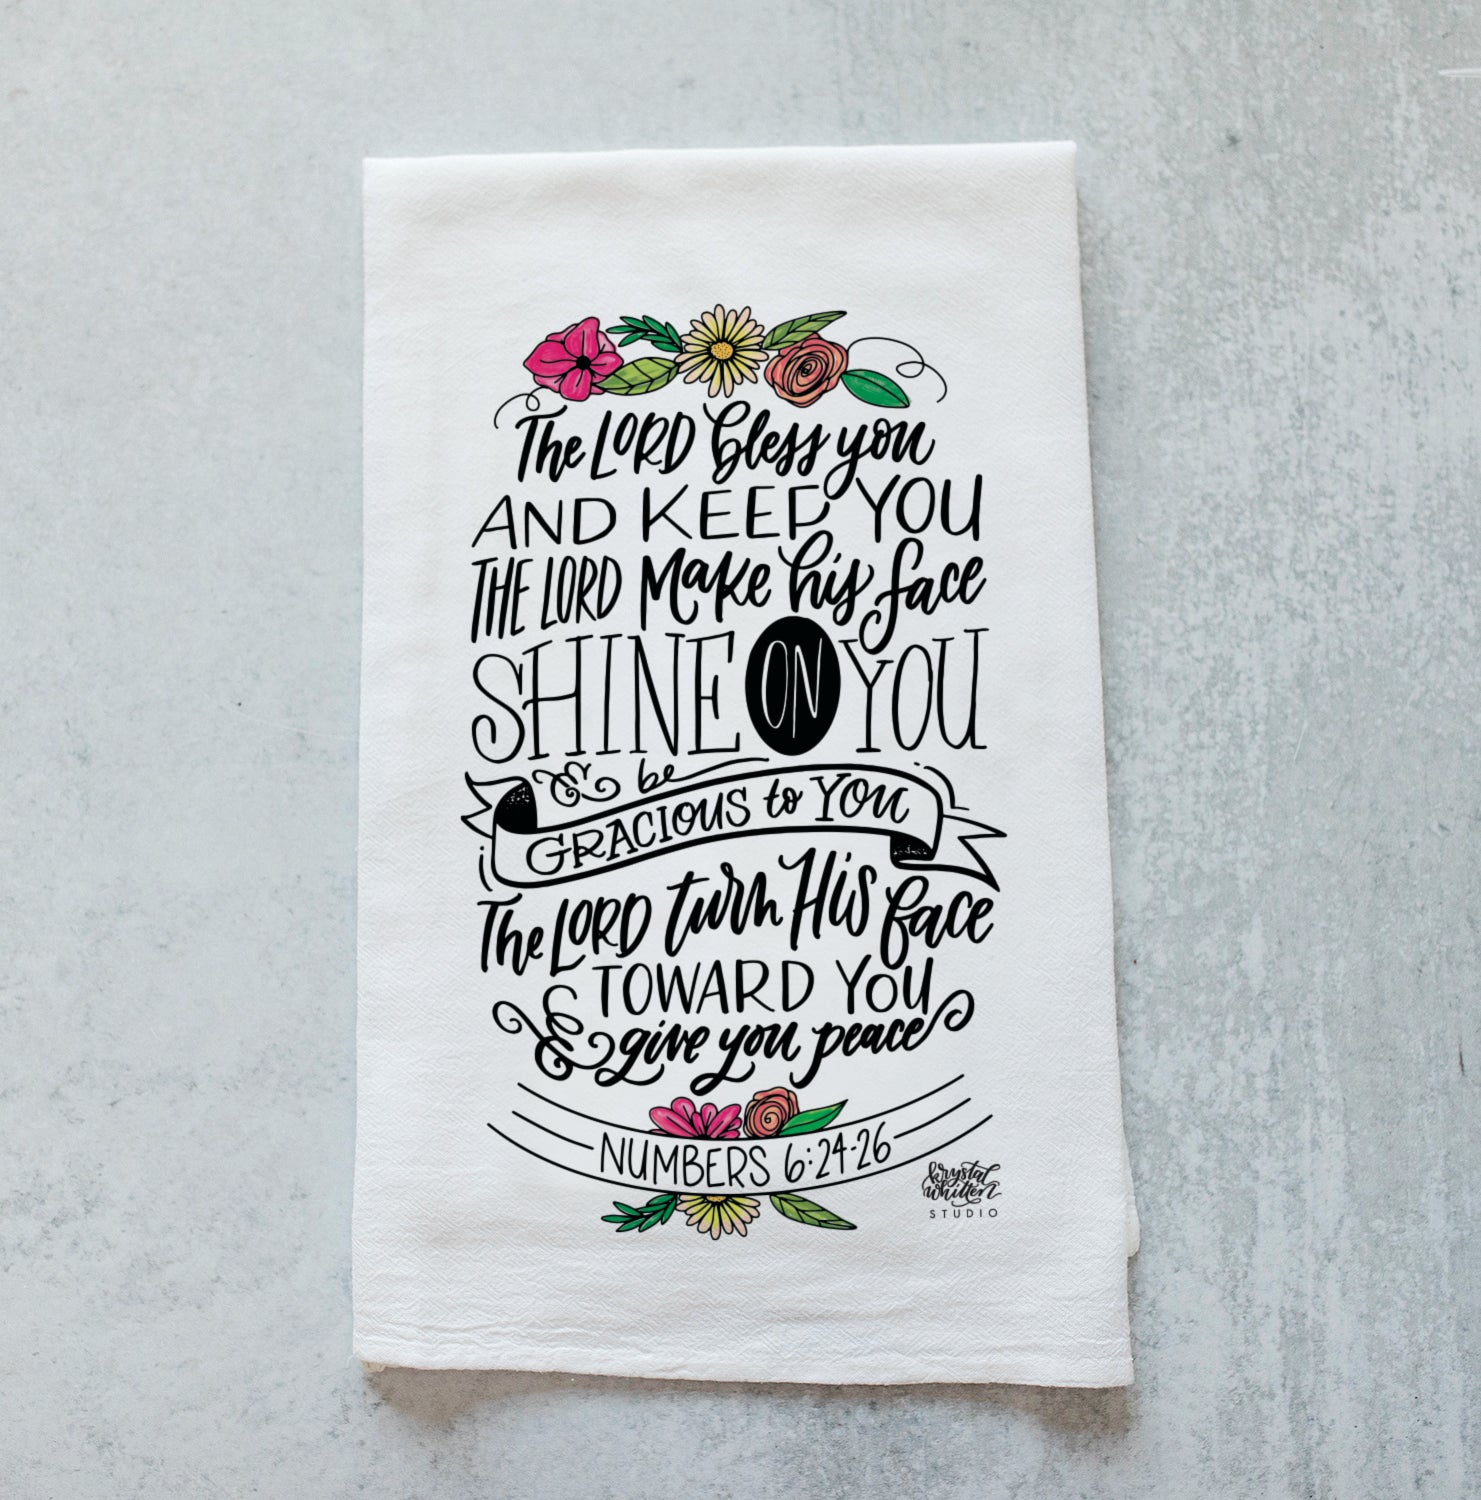 The LORD bless you
AND KEEP YOU
THE LORD Make his face
SHINE ON YOU
& be
GRACIOUS to YOU
The LORD turn His face
TOWARD YOU
& give you peace
NUMBERS 6:24-26
krystal
whitten
STUDIO